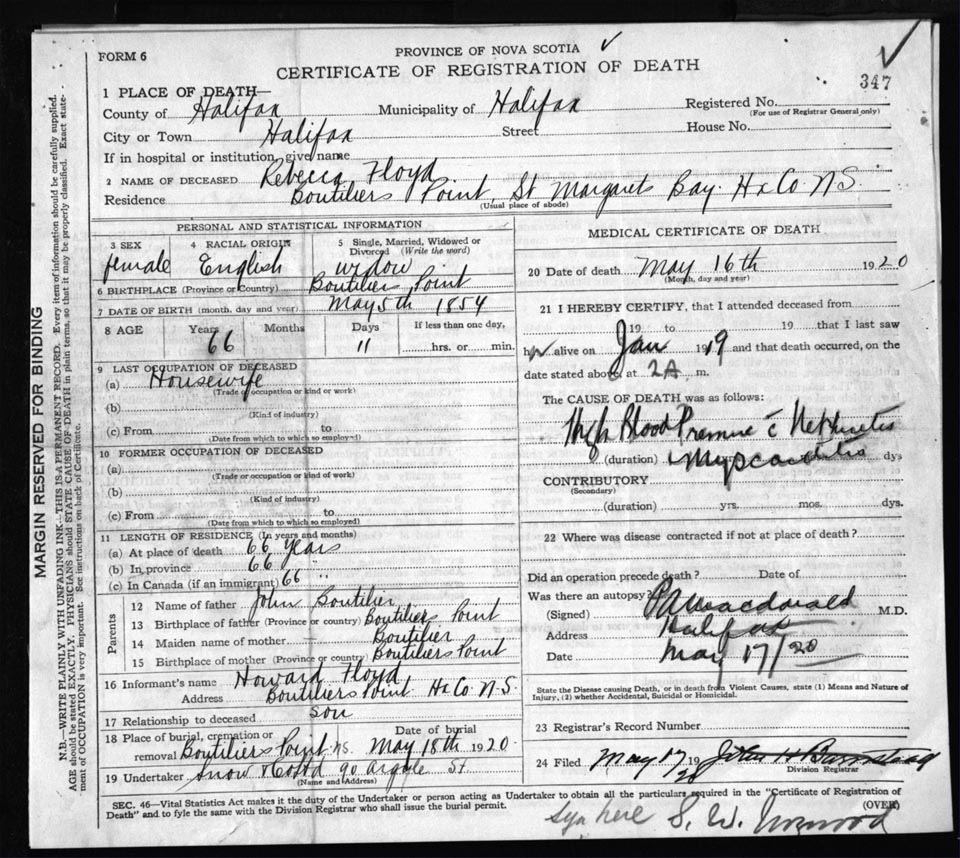 FORM 6
PROVINCE OF NOVA SCOTIA
CERTIFICATE OF REGISTRATION OF DEATH
347
1 PLACE OF DEATH—
County of Halifax Municipality of Halifax Registered No.
(For use of Registrar General only)
City or Town Halifax Street House No.
If in hospital or institution, give name
2 NAME OF DECEASED Rebecca Floyd
Residence Boutiliers Point, St Margarets Bay. Hx Co N.S.
(Usual place of abode)
PERSONAL AND STATISTICAL INFORMATION
3 SEX 4 RACIAL ORIGIN 5 Single, Married, Widowed or Divorced (Write the word)
female English widow
6 BIRTHPLACE (Province or Country) Boutiliers Point
7 DATE OF BIRTH (month, day and year) May 5th 1854
8 AGE Years Months Days If less than one day,
66 11 hrs. or min.
9 LAST OCCUPATION OF DECEASED
(a) Housewife
(Trade or occupation or kind or work)
(b)
(Kind of industry)
(c) From to
(Date from which to which so employed)
10 FORMER OCCUPATION OF DECEASED
(a)
(Trade or occupation or kind of work)
(b)
(Kind of industry)
(c) From to
(Date from which to which so employed)
11 LENGTH OF RESIDENCE (In years and months)
(a) At place of death 66 years
(b) In province 66 "
(c) In Canada (if an immigrant) 66 "
Parents
12 Name of father John Boutilier
13 Birthplace of father (Province or country) Boutiliers Point
14 Maiden name of mother Boutilier
15 Birthplace of mother (Province or country) Boutiliers Point
16 Informant's name Howard Floyd
Address Boutiliers Point Hx Co N.S.
17 Relationship to deceased son
18 Place of burial, cremation or removal Boutiliers Point N.S. Date of burial May 18th 1920
19 Undertaker Snow & Co Ltd 90 Argyle St.
(Name and Address)
MEDICAL CERTIFICATE OF DEATH
20 Date of death May 16th 1920
(Month, day and year)
21 I HEREBY CERTIFY, that I attended deceased from
19 to 19 that I last saw
h alive on Jan 1919 and that death occurred, on the
date stated above, at 2A m.
The CAUSE OF DEATH was as follows:
High Blood Pressure c Nephritis
(duration) Myocarditis dys
CONTRIBUTORY
(Secondary)
(duration) yrs. mos. dys.
22 Where was disease contracted if not at place of death?
Did an operation precede death? Date of
Was there an autopsy?
(Signed) MacDonald M.D.
Address Halifax
Date May 17/20
State the Disease causing Death, or in death from Violent Causes, state (1) Means and Nature of
Injury, (2) whether Accidental, Suicidal or Homicidal.
23 Registrar's Record Number
24 Filed May 17 1920 John H Barnstead
Division Registrar
SEC. 46—Vital Statistics Act makes it the duty of the Undertaker or person acting as Undertaker to obtain all the particulars required in the "Certificate of Registration of
Death" and to fyle the same with the Division Registrar who shall issue the burial permit. (OVER)
sign here S. W.
MARGIN RESERVED FOR BINDING
N.B.—WRITE PLAINLY WITH UNFADING INK—THIS IS A PERMANENT RECORD. Every item of information should be carefully supplied.
AGE should be stated EXACTLY. PHYSICIANS should STATE CAUSE OF DEATH in plain terms, so that it may be properly classified. Exact state-
ment of OCCUPATION is very important. See instructions on back of Certificate.